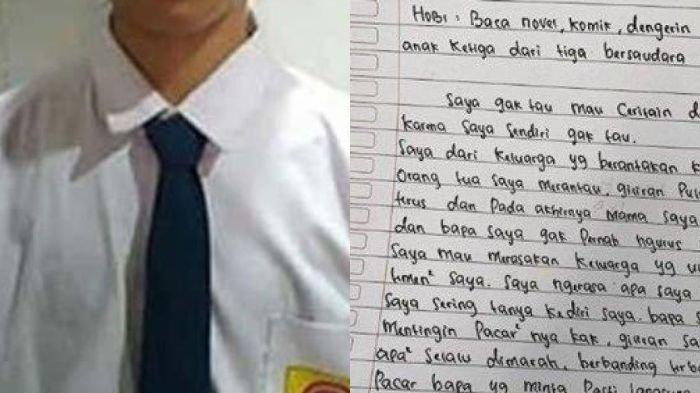 HOBI : Baca novel, komik, dengerin
anak ketiga dari tiga bersaudara
Saya gak tau mau Ceritain d
karma Saya Sendiri gak tau.
Saya dari Keluarga yg berantakan k
orang tua saya merantau. giliran Pul
terus dan Pada akhirnya mama saya
dan bapa saya gak Pernah ngurus
Saya mau merasakan Keluarga yg u
temen² saya. Saya ngerasa apa saya
Saya sering tanya ke diri saya. bapa s
mentingin Pacar² nya kak, giliran sa
apa² selalu dimarah, berbanding terba
Pacar bapa yg minta Pasti langsung